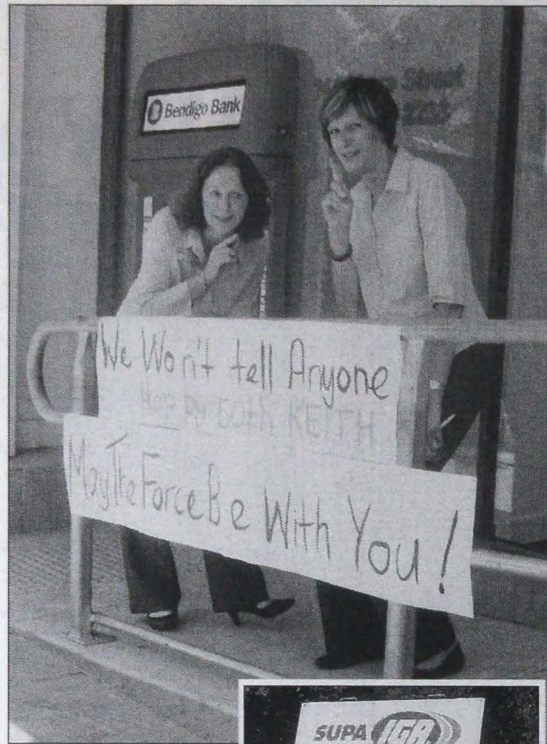 Bendigo Bank
Street
We Won't tell Anyone
Happy 60th KEITH
May The Force Be With You!
SUPA IGA